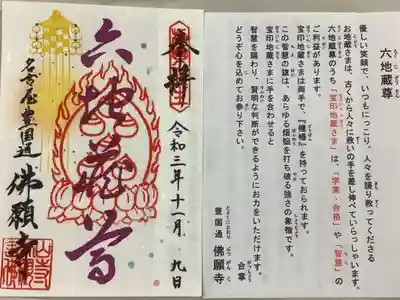 奉拝
六地蔵尊
令和三年十一月九日
名古屋豊国通
佛願寺
六地蔵尊
優しい笑顔で、いつもにっこり。人々を護り救ってくださる
お地蔵さまは、古くから人々に救いの手を差し伸べていらっしゃいます。
六地蔵尊のうち「宝印地蔵さま」は、「学業・合格」や「智慧」の
ご利益があります。
宝印地蔵さまは両手で、『幢幡』を持っておられます。
この智慧の旗は、あらゆる煩悩を打ち破る強さの象徴です。
宝印地蔵さまに手を合わせると
智慧を賜わり、賢明な判断ができるようにお力をいただけます。
どうぞ心を込めてお参り下さい。
合掌
豊国通 佛願寺